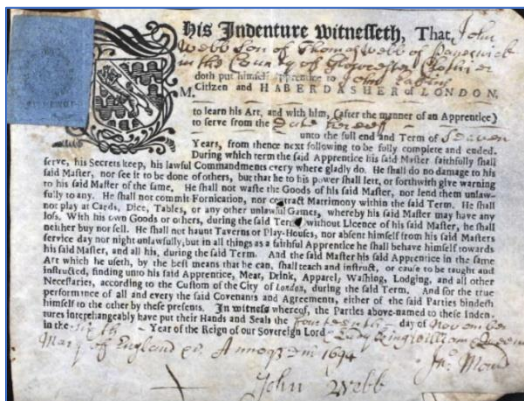 THis Indenture Witnesseth, That John
Webb Son of Thomas Webb of
in the County of Glocester
doth put himself Apprentice to John
Citizen and HABERDASHER of LONDON,
to learn his Art, and with him, (after the manner of an Apprentice)
to serve from the Date hereof
unto the full end and Term of Seaven
Years, from thence next following to be fully complete and ended.
During which term the said Apprentice his said Master faithfully shall
serve, his Secrets keep, his lawful Commandments every where gladly do. He shall do no damage to his
said Master, nor see it to be done of others, but that he to his power shall lett, or forthwith give warning
to his said Master of the same. He shall not waste the Goods of his said Master, nor lend them unlaw-
fully to any. He shall not commit Fornication, nor contract Matrimony within the said Term. He shall
not play at Cards, Dice, Tables, or any other unlawful Games, whereby his said Master may have any
loss. With his own Goods or others, during the said Term, without Licence of his said Master, he shall
neither buy nor sell. He shall not haunt Taverns or Play-Houses, nor absent himself from his said Masters
service day nor night unlawfully, but in all things as a faithful Apprentice he shall behave himself towards
his said Master, and all his, during the said Term. And the said Master his said Apprentice in the same
Art which he useth, by the best means that he can, shall teach and instruct, or cause to be taught and
instructed, finding unto his said Apprentice, Meat, Drink, Apparel, Washing, Lodging, and all other
Necessaries, according to the Custom of the City of London, during the said Term. And for the true
performance of all and every the said Covenants and Agreements, either of the said Parties bindeth
himself to the other by these presents. In witness whereof, the Parties above-named to these Inden-
tures interchangeably have put their Hands and Seals the fourteenth day of November
in the sixth Year of the Reign of our Sovereign Lord King William
Mary of England &c Annoq; Dom 1694
John Webb